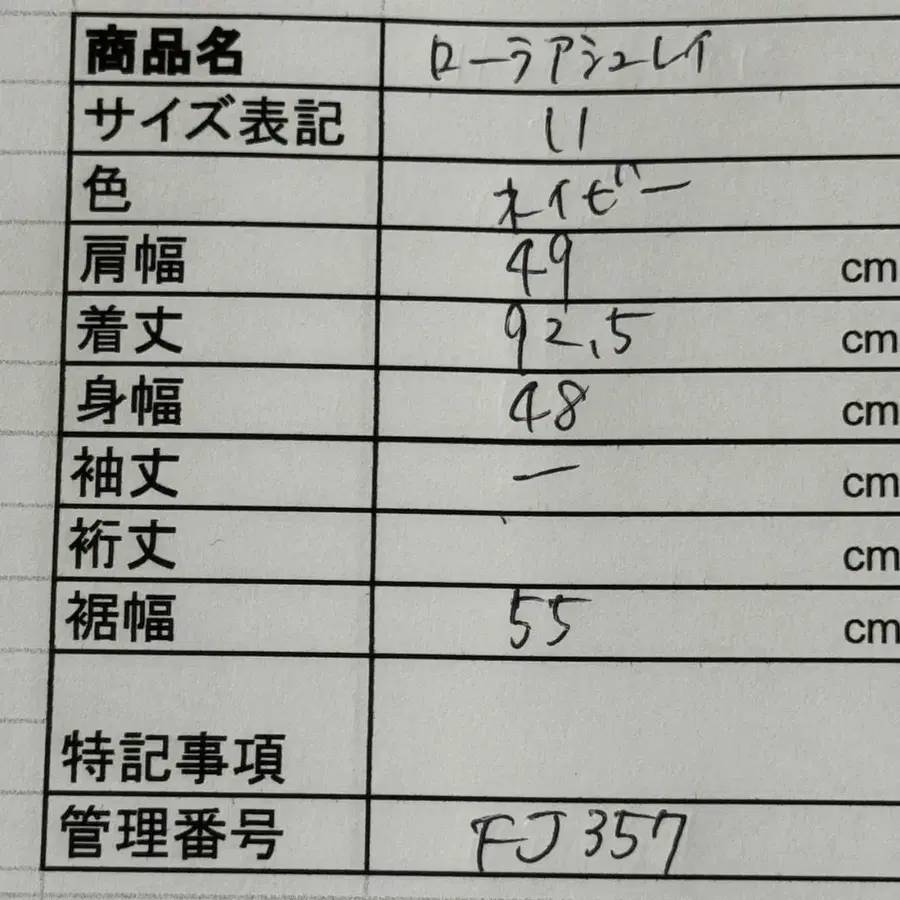 商品名 ローラアシュレイ
サイズ表記 11
色 ネイビー
肩幅 49 cm
着丈 92.5 cm
身幅 48 cm
袖丈 ー cm
裄丈 cm
裾幅 55 cm
特記事項
管理番号 FJ357